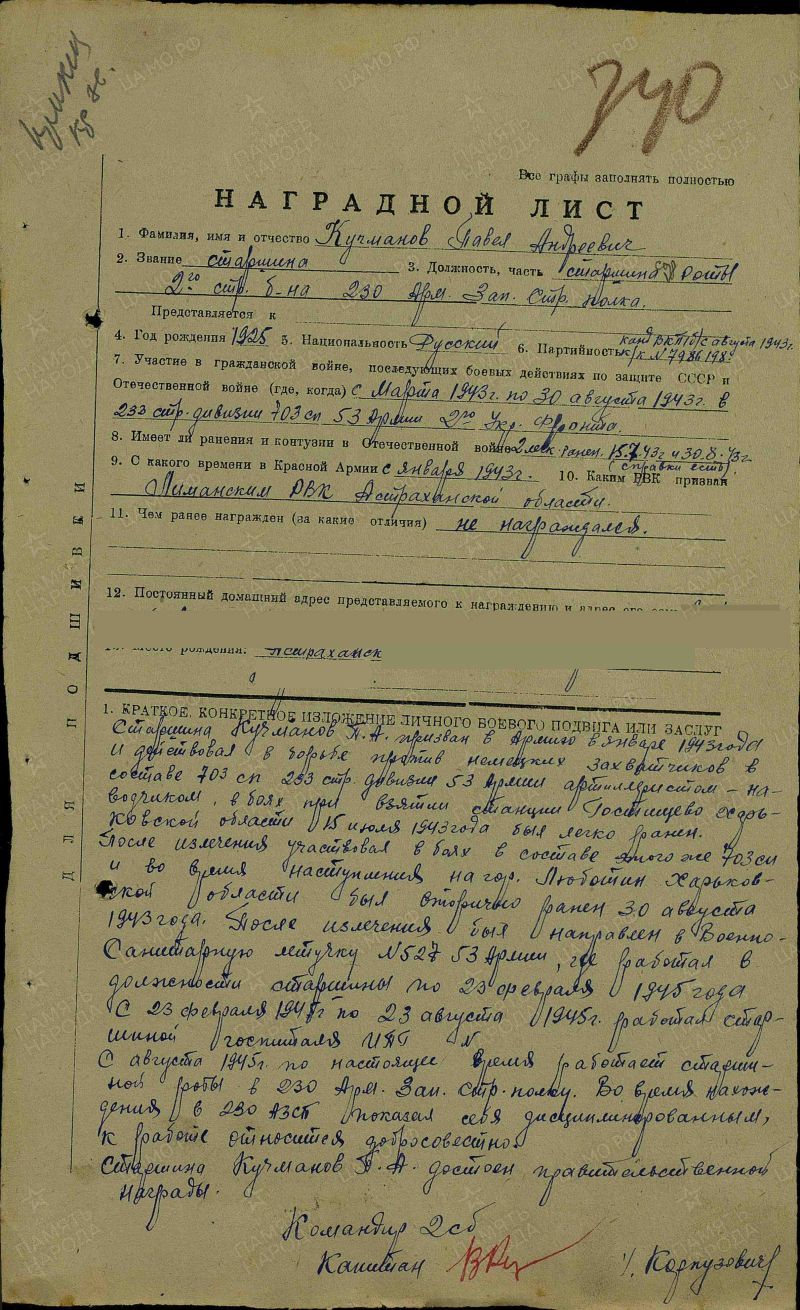 740
Все графы заполнять полностью
НАГРАДНОЙ ЛИСТ
1. Фамилия, имя и отчество Кучманов Павел Андреевич
2. Звание старшина 3. Должность, часть старшина роты
2го стр. б-на 230 Арм. Зап. Стр. полка.
Представляется к
4. Год рождения 1925 5. Национальность Русский 6. Партийность канд ВКП(б) с августа 1943г.
к/к N 7986198.
7. Участие в гражданской войне, последующих боевых действиях по защите СССР и
Отечественной войне (где, когда) с Марта 1943г. по 30 августа 1943г. в
233 стр. дивизии 703 сп 53 Армии 2го Укр. Фронта.
8. Имеет ли ранения и контузии в Отечественной войне 2 легк. ранен. 15.7.43г и 30.8.43г.
(справки есть)
9. С какого времени в Красной Армии с января 1943г. 10. Каким РВК призван
Лиманским РВК Астраханской области.
11. Чем ранее награжден (за какие отличия) не награждался.
12. Постоянный домашний адрес представляемого к награждению и адрес его
место рождения: Астраханск
1. КРАТКОЕ, КОНКРЕТНОЕ ИЗЛОЖЕНИЕ ЛИЧНОГО БОЕВОГО ПОДВИГА ИЛИ ЗАСЛУГ
Старшина Кучманов П.А. призван в Армию в январе 1943 года
и действовал в борьбе против немецких захватчиков в
составе 703 сп 233 стр. дивизии 53 Армии артиллеристом - на-
водчиком, в боях при взятии станции Гостищево Харь-
ковской области 15 июля 1943 года был легко ранен.
После излечения участвовал в боях в составе этого же 703 сп
и во время наступления на гор. Люботин Харьков-
ской области был вторично ранен 30 августа
1943 года. После излечения был направлен в Военно-
Санитарную летучку N 527 53 Армии, где работал в
должности старшины по 23 февраля 1945 года
С 23 февраля 1945г по 23 августа 1945г. работал стар-
шиной госпиталя ИПГ N
С августа 1945г. по настоящее время работает старши-
ной роты в 230 Арм. Зап. стр. полку. Во время нахож-
дения в 230 АЗСП показал себя дисциплинированным,
к работе относится добросовестно.
Старшина Кучманов П.А. достоен правительственной
награды.
Командир 2сб
Капитан /Корпузович/
ДЛЯ ПОДШИВКИ
ПАМЯТЬ НАРОДА
ЦАМО.РФ